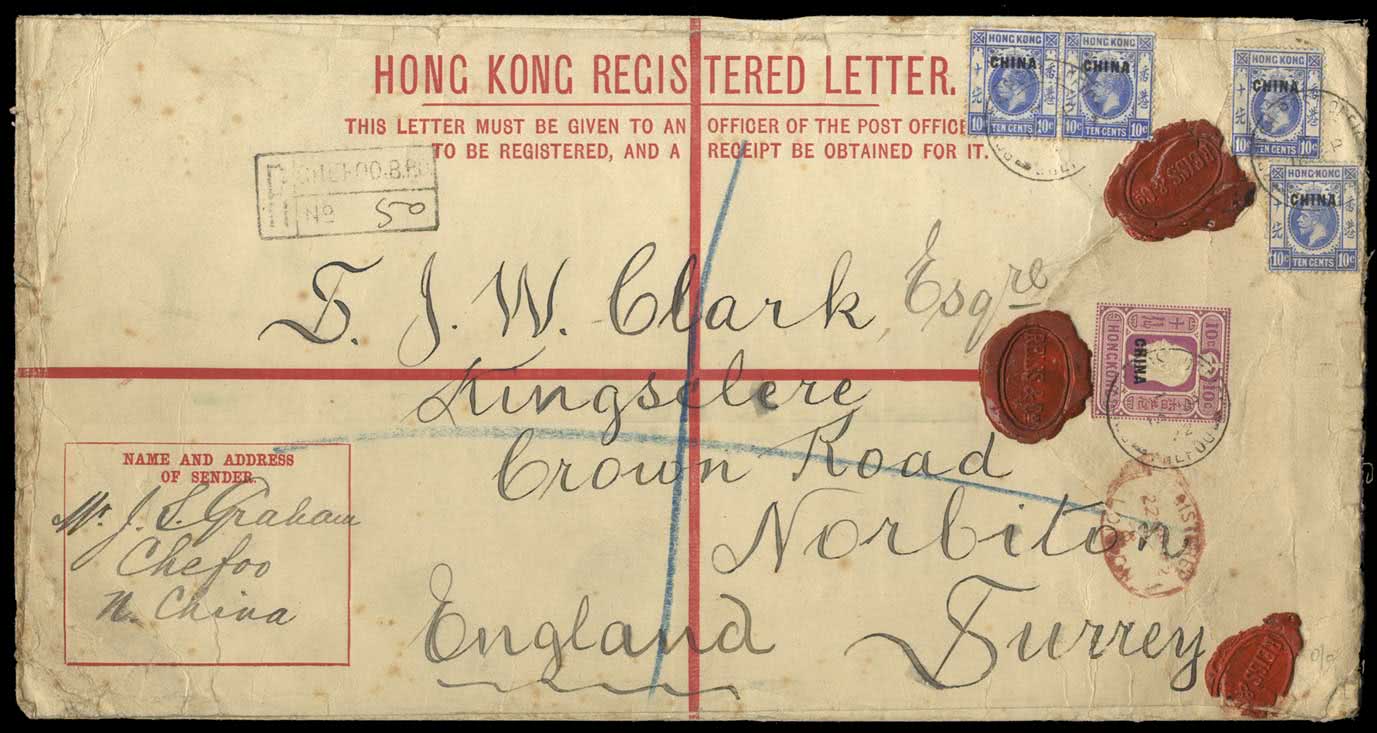 HONG KONG REGISTERED LETTER.
THIS LETTER MUST BE GIVEN TO AN OFFICER OF THE POST OFFICE
TO BE REGISTERED, AND A RECEIPT BE OBTAINED FOR IT.
HONG KONG
CHINA
10c TEN CENTS 10c
HONG KONG
CHINA
10c TEN CENTS 10c
HONG KONG
CHINA
10c TEN CENTS 10c
HONG KONG
CHINA
10c TEN CENTS 10c
R CHEFOO.B.P.O.
No 50
S. J. W. Clark, Esqre
Kingsclere
Crown Road
Norbiton
Surrey
England
10c 10c
HONGKONG
CHINA
NAME AND ADDRESS
OF SENDER.
Mr. J. S. Graham
Chefoo
N. China